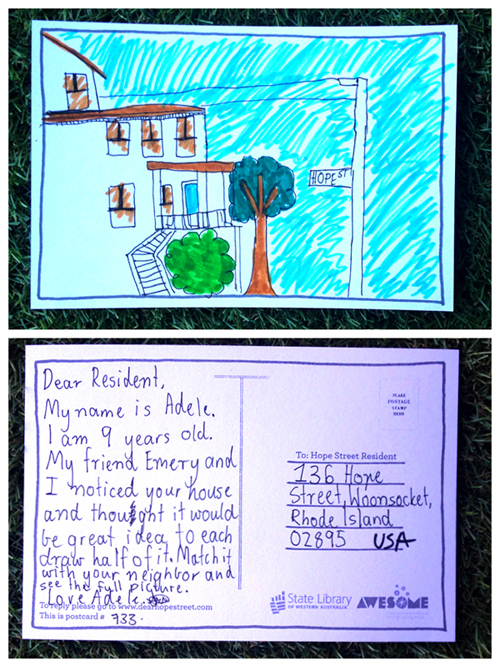 HOPE ST
Dear Resident,
My name is Adele.
I am 9 years old.
My friend Emery and
I noticed your house
and thought it would
be great idea to each
draw half of it. Match it
with your neighbor and
see the full picture.
Love Adele.
To reply please go to www.dearhopestreet.com
This is postcard # 733.
PLACE
POSTAGE
STAMP
HERE
To: Hope Street Resident
136 Hope
Street, Woonsocket,
Rhode Island
02895 USA
State Library
OF WESTERN AUSTRALIA
AWESOME